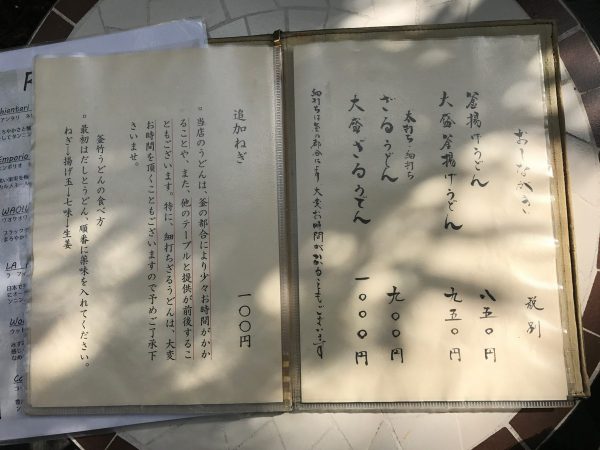 おしながき
税別
釜揚げうどん
八五〇円
大盛釜揚げうどん
九五〇円
太打ち・細打ち
ざるうどん
九〇〇円
大盛ざるうどん
一〇〇〇円
細打ちは釜の都合により大変お時間がかかることもございます
追加ねぎ
一〇〇円
。当店のうどんは、釜の都合により少々お時間がかか
ることや、また、他のテーブルと提供が前後するこ
ともございます。特に、細打ちざるうどんは、大変
お時間を頂くこともございますので予めご了承下
さいませ。
釜竹うどんの食べ方
。最初はだしとうどん、順番に薬味を入れてください。
ねぎ→揚げ玉→七味→生姜
Emporio
WAOIL
LA